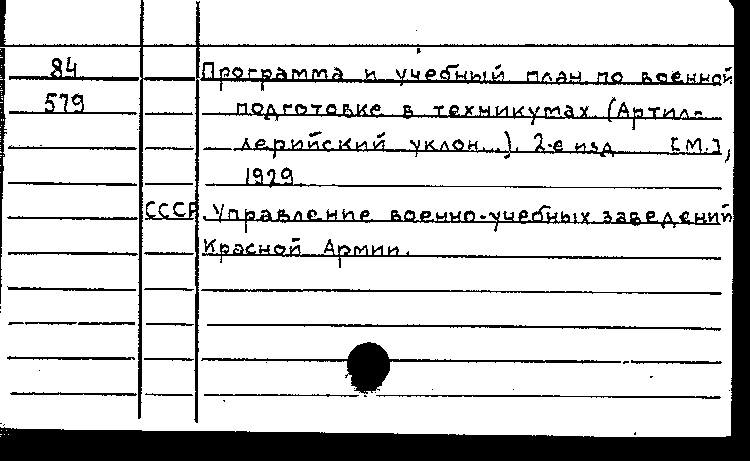 84 Программа и учебный план по военной
579 подготовке в техникумах. (Артил-
лерийский уклон...). 2-е изд. [М.],
1929.
СССР. Управление военно-учебных заведений
Красной Армии.